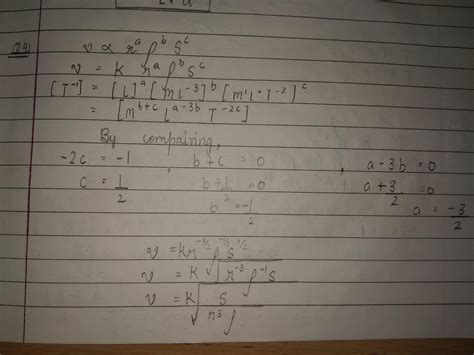 Q.4)
ν ∝ r^a ρ^b S^c
ν = K r^a ρ^b S^c
[T^-1] = [L]^a [ML^-3]^b [M^1L^0T^-2]^c
= [M^{b+c} L^{a-3b} T^{-2c}]
By compairing,
-2c = -1 , b+c = 0 , a-3b = 0
c = 1/2 b + 1/2 = 0 a + 3/2 = 0
b = -1/2 a = -3/2
ν = K r^{-3/2} ρ^{-1/2} S^{1/2}
ν = K √(r^-3 ρ^-1 S)
ν = K √(S / r^3 ρ)